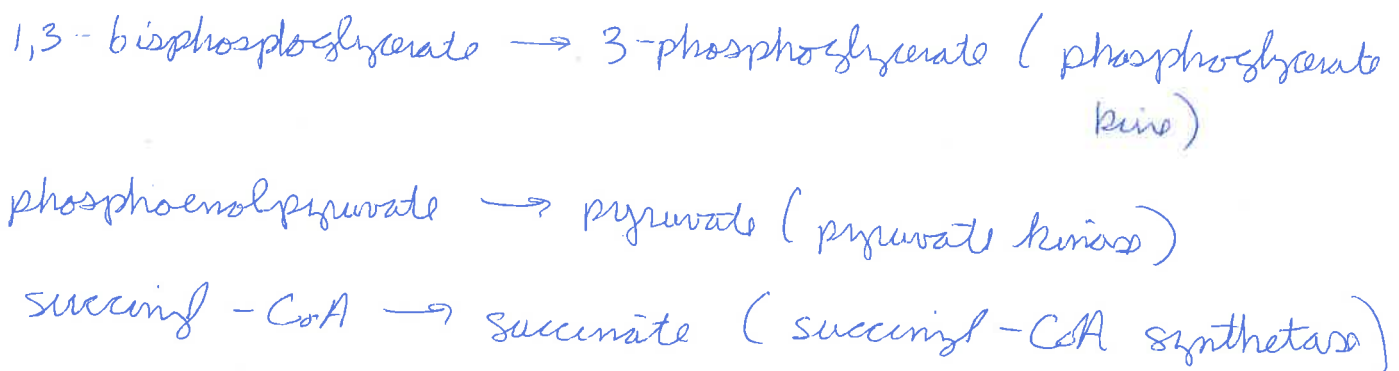 1,3-bisphosphoglycerate → 3-phosphoglycerate (phosphoglycerate
kinase)
phosphoenolpyruvate → pyruvate (pyruvate kinase)
succinyl-CoA → succinate (succinyl-CoA synthetase)